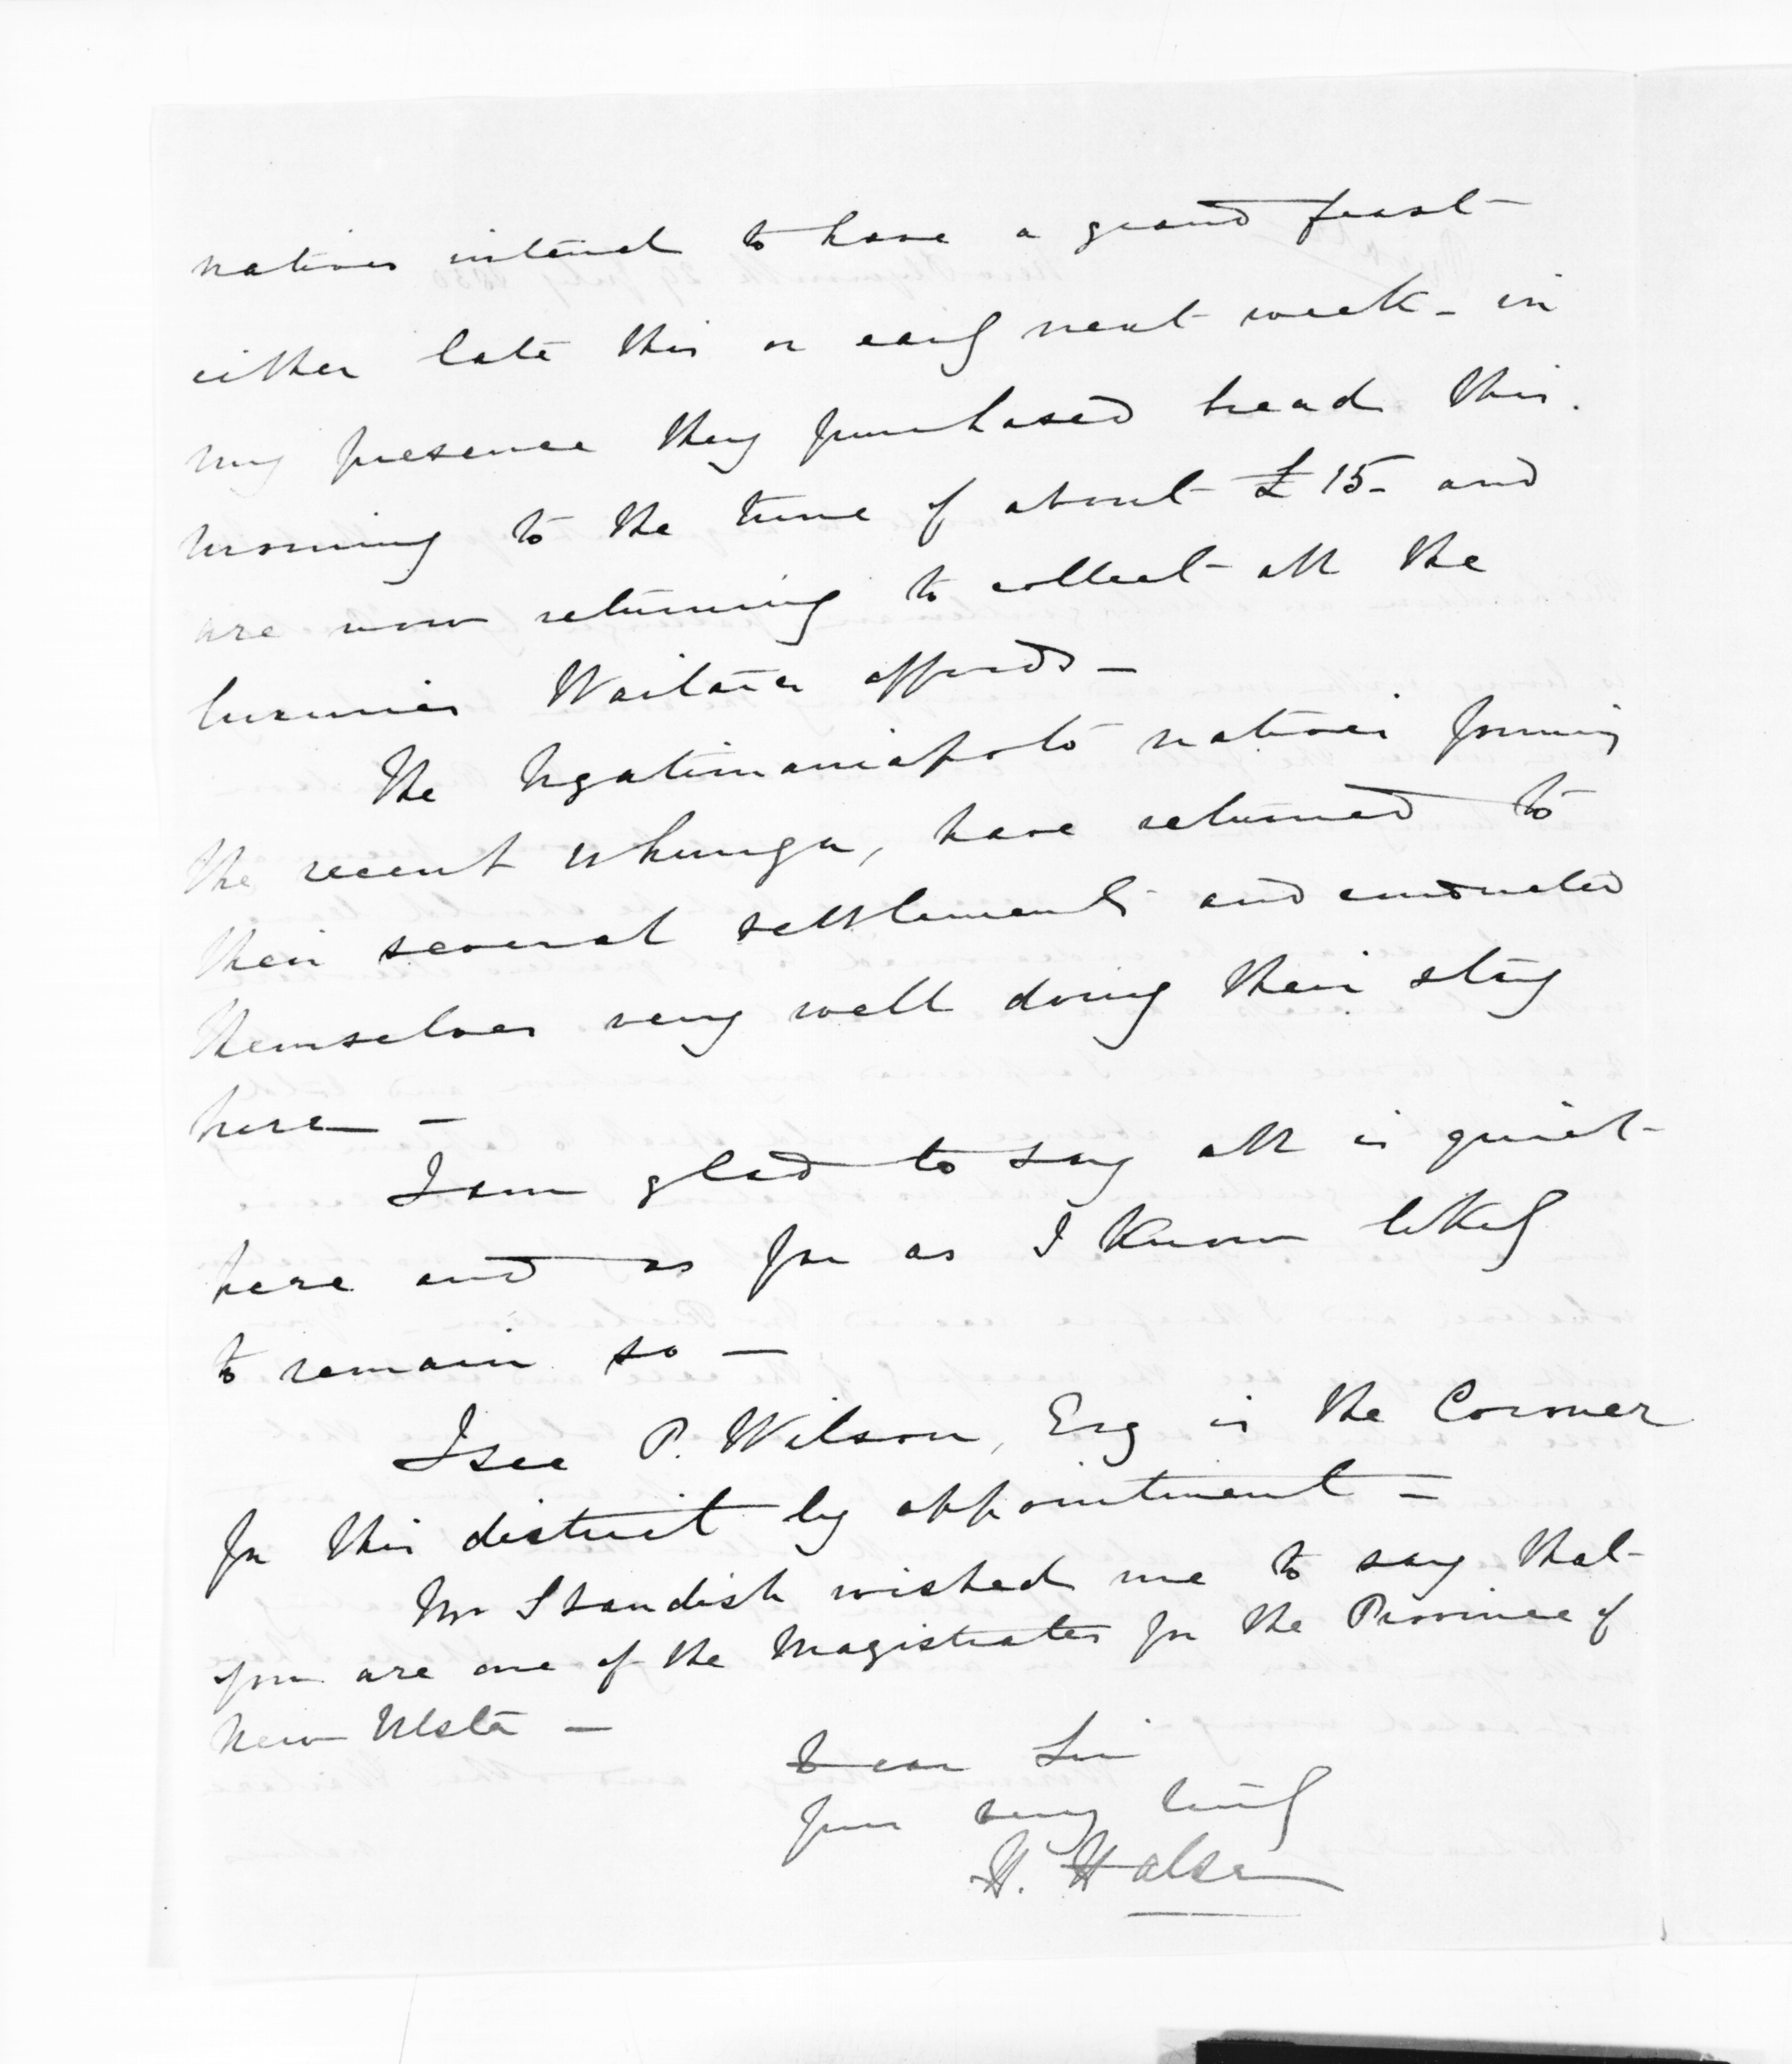 natives intend to have a grand feast -
either late this or early next week - in
my presence they purchased bread this
morning to the tune of about £15 - and
are now returning to collect all the
luxuries Waitara affords -
The Ngatimaniapoto natives forming
the recent whunga, have returned to
their several settlements and conducted
themselves very well during their stay
here -
I am glad to say all is quiet
here and as far as I know likely
to remain so -
I see P. Wilson, Esq is the Coroner
for this district by appointment -
Mr Standish wished me to say that
you are one of the Magistrates for the Province of
New Ulster -
Dear Sir
Yours very truly
H. Halse